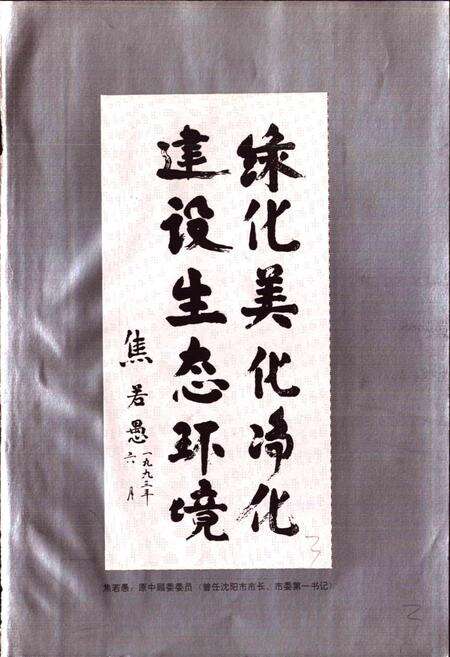 绿化美化净化
建设生态环境
焦若愚
一九九三年
六月
焦若愚:原中顾委委员(曾任沈阳市市长、市委第一书记)